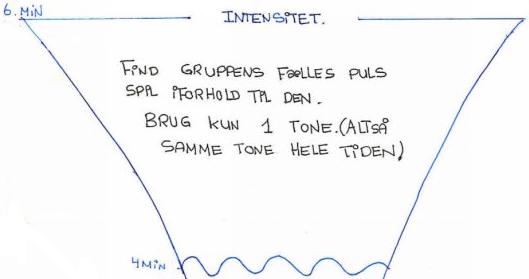 6. MIN
INTENSITET.
FIND GRUPPENS FÆLLES PULS
SPIL IFORHOLD TIL DEN.
BRUG KUN 1 TONE. (ALTSÅ
SAMME TONE HELE TIDEN)
4 MIN